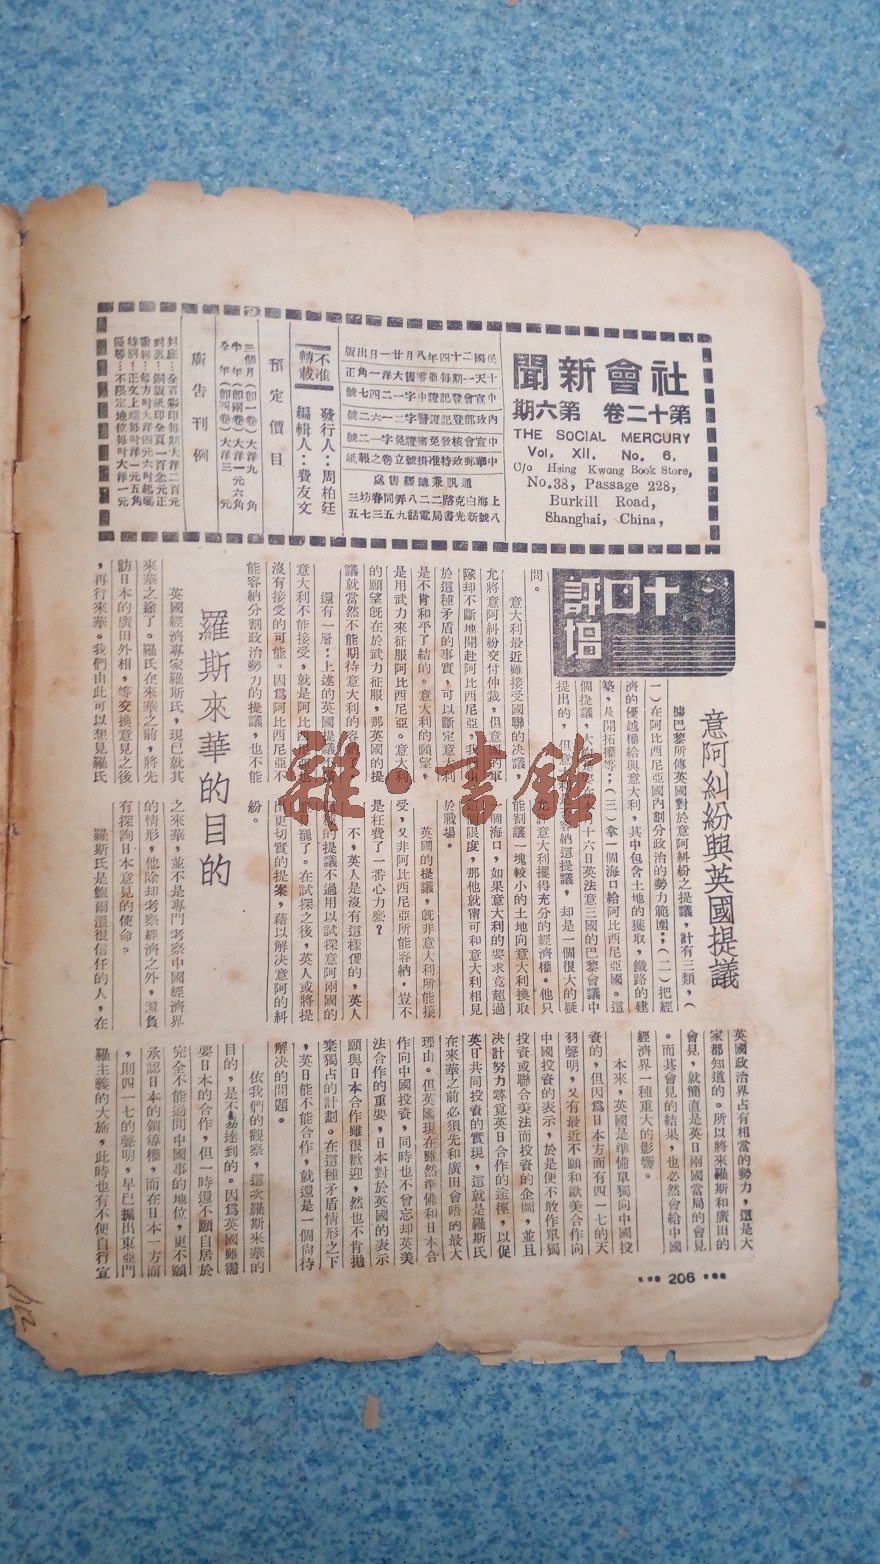 社會新聞
第十二卷 第六期
THE SOCIAL MERCURY
Vol. XII. No. 6.
C/o Hsing Kwong Book Store,
No.38, Passage 228,
Burkill Road,
Shanghai, China,
民國二十四年八月廿一日出版
十天一期每冊零售大洋一角正
中宣會登記證中字一二四七號
內政部登記證警字二一六二號
中宣會核發免審證免字一二號
中華郵政特准掛號立卷之報紙
通訊兼總經售處
上海白克路二二八弄同春坊三
八號新光書局電話九五三七五
不准
轉載
發行人：周柏廷
編輯人：費友文
預定價目
三個月（卽一卷）大洋九角
半年（卽兩卷）大洋一元六角
全年（卽四卷）大洋三元
廣告刊例
十日
評壇
意阿糾紛與英國提議
據巴黎所傳英國對於意阿糾紛之提議，計有三類，（
一）在阿比西尼亞國內劃分政治的勢力範圍；（二）把經
濟的優越權給與意大利，其中包含土地的獲取，鐵路的建
築，及開拓權等；（三）拿一個海口給阿比西尼亞國。這
個提議，大約
十六日英法意三國的巴黎會議中
提出的，但意
容納這提議，却是一個很大的疑
問。
意大利最近雖接受國聯的決議，
允將意阿糾紛交付仲裁，但意國的軍
隊却不斷地開赴阿比西尼亞，我
於這種矛盾的事實，可以斷定意大利
是不肯和平了結的。意大利的願望，
是用武力來征服阿比西尼亞。意大利
的願望旣在於武力征服，那英國的提
議就當然不能期待意大利的容納了。
還有一層：上述的英國提議不
意大利不能接受，就是阿比西
沒有接受的可能。因爲阿比西尼亞不
能容納分割政治勢力的提議，也不能
意大利獲得充分的經濟權。他只
能割讓一塊較小的土地向意大利換取
個海口，如果意大利的要求竟超過
限度，那他就甯可和意大利相見
於戰場。
英國的提議，旣非意大利所能接
受，又非阿比西尼亞所能容納。豈不
是枉費了一番心力麽？
不，英人是沒有這樣傻的，英人
的提議不過用以試探意阿兩國的
罷了。在試探之後，英人或將提
出更切實的提案，藉以解決意阿的糾
紛。
羅斯來華的目的
英國經濟專家羅斯氏，現已就其
來華之途了。羅氏在來華之前，將先
訪日本的廣田外相，等交換意見之後
，再行來華。我們由此可以想見羅氏
之來華，並不是專門考察中國經濟界
的情形，他除却考察經濟之外，還負
有探詢日本意見的使命。
羅斯氏是鮑爾溫很信任的人，在
英國政治界占有相當的勢力，這是大
家都知道的。所以將來羅斯和廣田的
會見，就簡直是英日兩國當局的會見
。而其會見的結果，也必然會給中國
經濟界一種重大的影響。
本來，英國是準備單獨向中國投
資的，但因爲日本方面有四一七的天
羽聲明，又有最近不願和歐美合作向
中國投資的表示，於是便不敢作單獨
投資或聯合美法而投資的企圖，並且
決計努力尋覓英日合作的途徑，以促
英日共同投資的實現，這就是羅斯氏
在來華之前必須先和廣田會晤的最大
理由。但英國現在雖然準備和日本合
作向中國投資，同時也不曾忘却英美
法合作的重要，日本對於英國的表示
願與日本合作雖很歡迎，然也不肯拋
棄獨占的計劃。在這種矛盾情形之下
，英日能不能合作，就還是一個尙待
解決的問題。
依我們的觀察，這次羅斯來華的
目的，是不易達到的。因爲英國雖需
要日本的合作，但一時還不願自居於
完全不能過問中國事的地位，更不願
承認日本的領導權，而在日本一方面
，則四一七的聲明，早已揭出東亞門
羅主義的大旆，此時也有不便自行宣
••• 206 •••
雜·書館